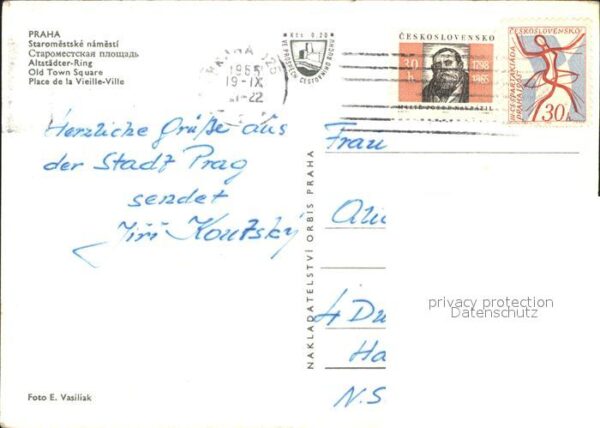 PRAHA
Staroměstské náměstí
Староместская площадь
Altstädter-Ring
Old Town Square
Place de la Vieille-Ville
PRAHA 025
1965
19-IX
21-22
Kčs 0.20
VE PROSPĚCH CESTOVNÍHO RUCHU
ČESKOSLOVENSKO
30 h
1798
1865
ČESKOSLOVENSKO
PRAHA 1965
30 h
Herzliche Grüße aus
der Stadt Prag
sendet
Jiří Koutský
NAKLADATELSTVÍ ORBIS PRAHA
Frau
4 Du
Ha
N.S
privacy protection
Datenschutz
Foto E. Vasiliak